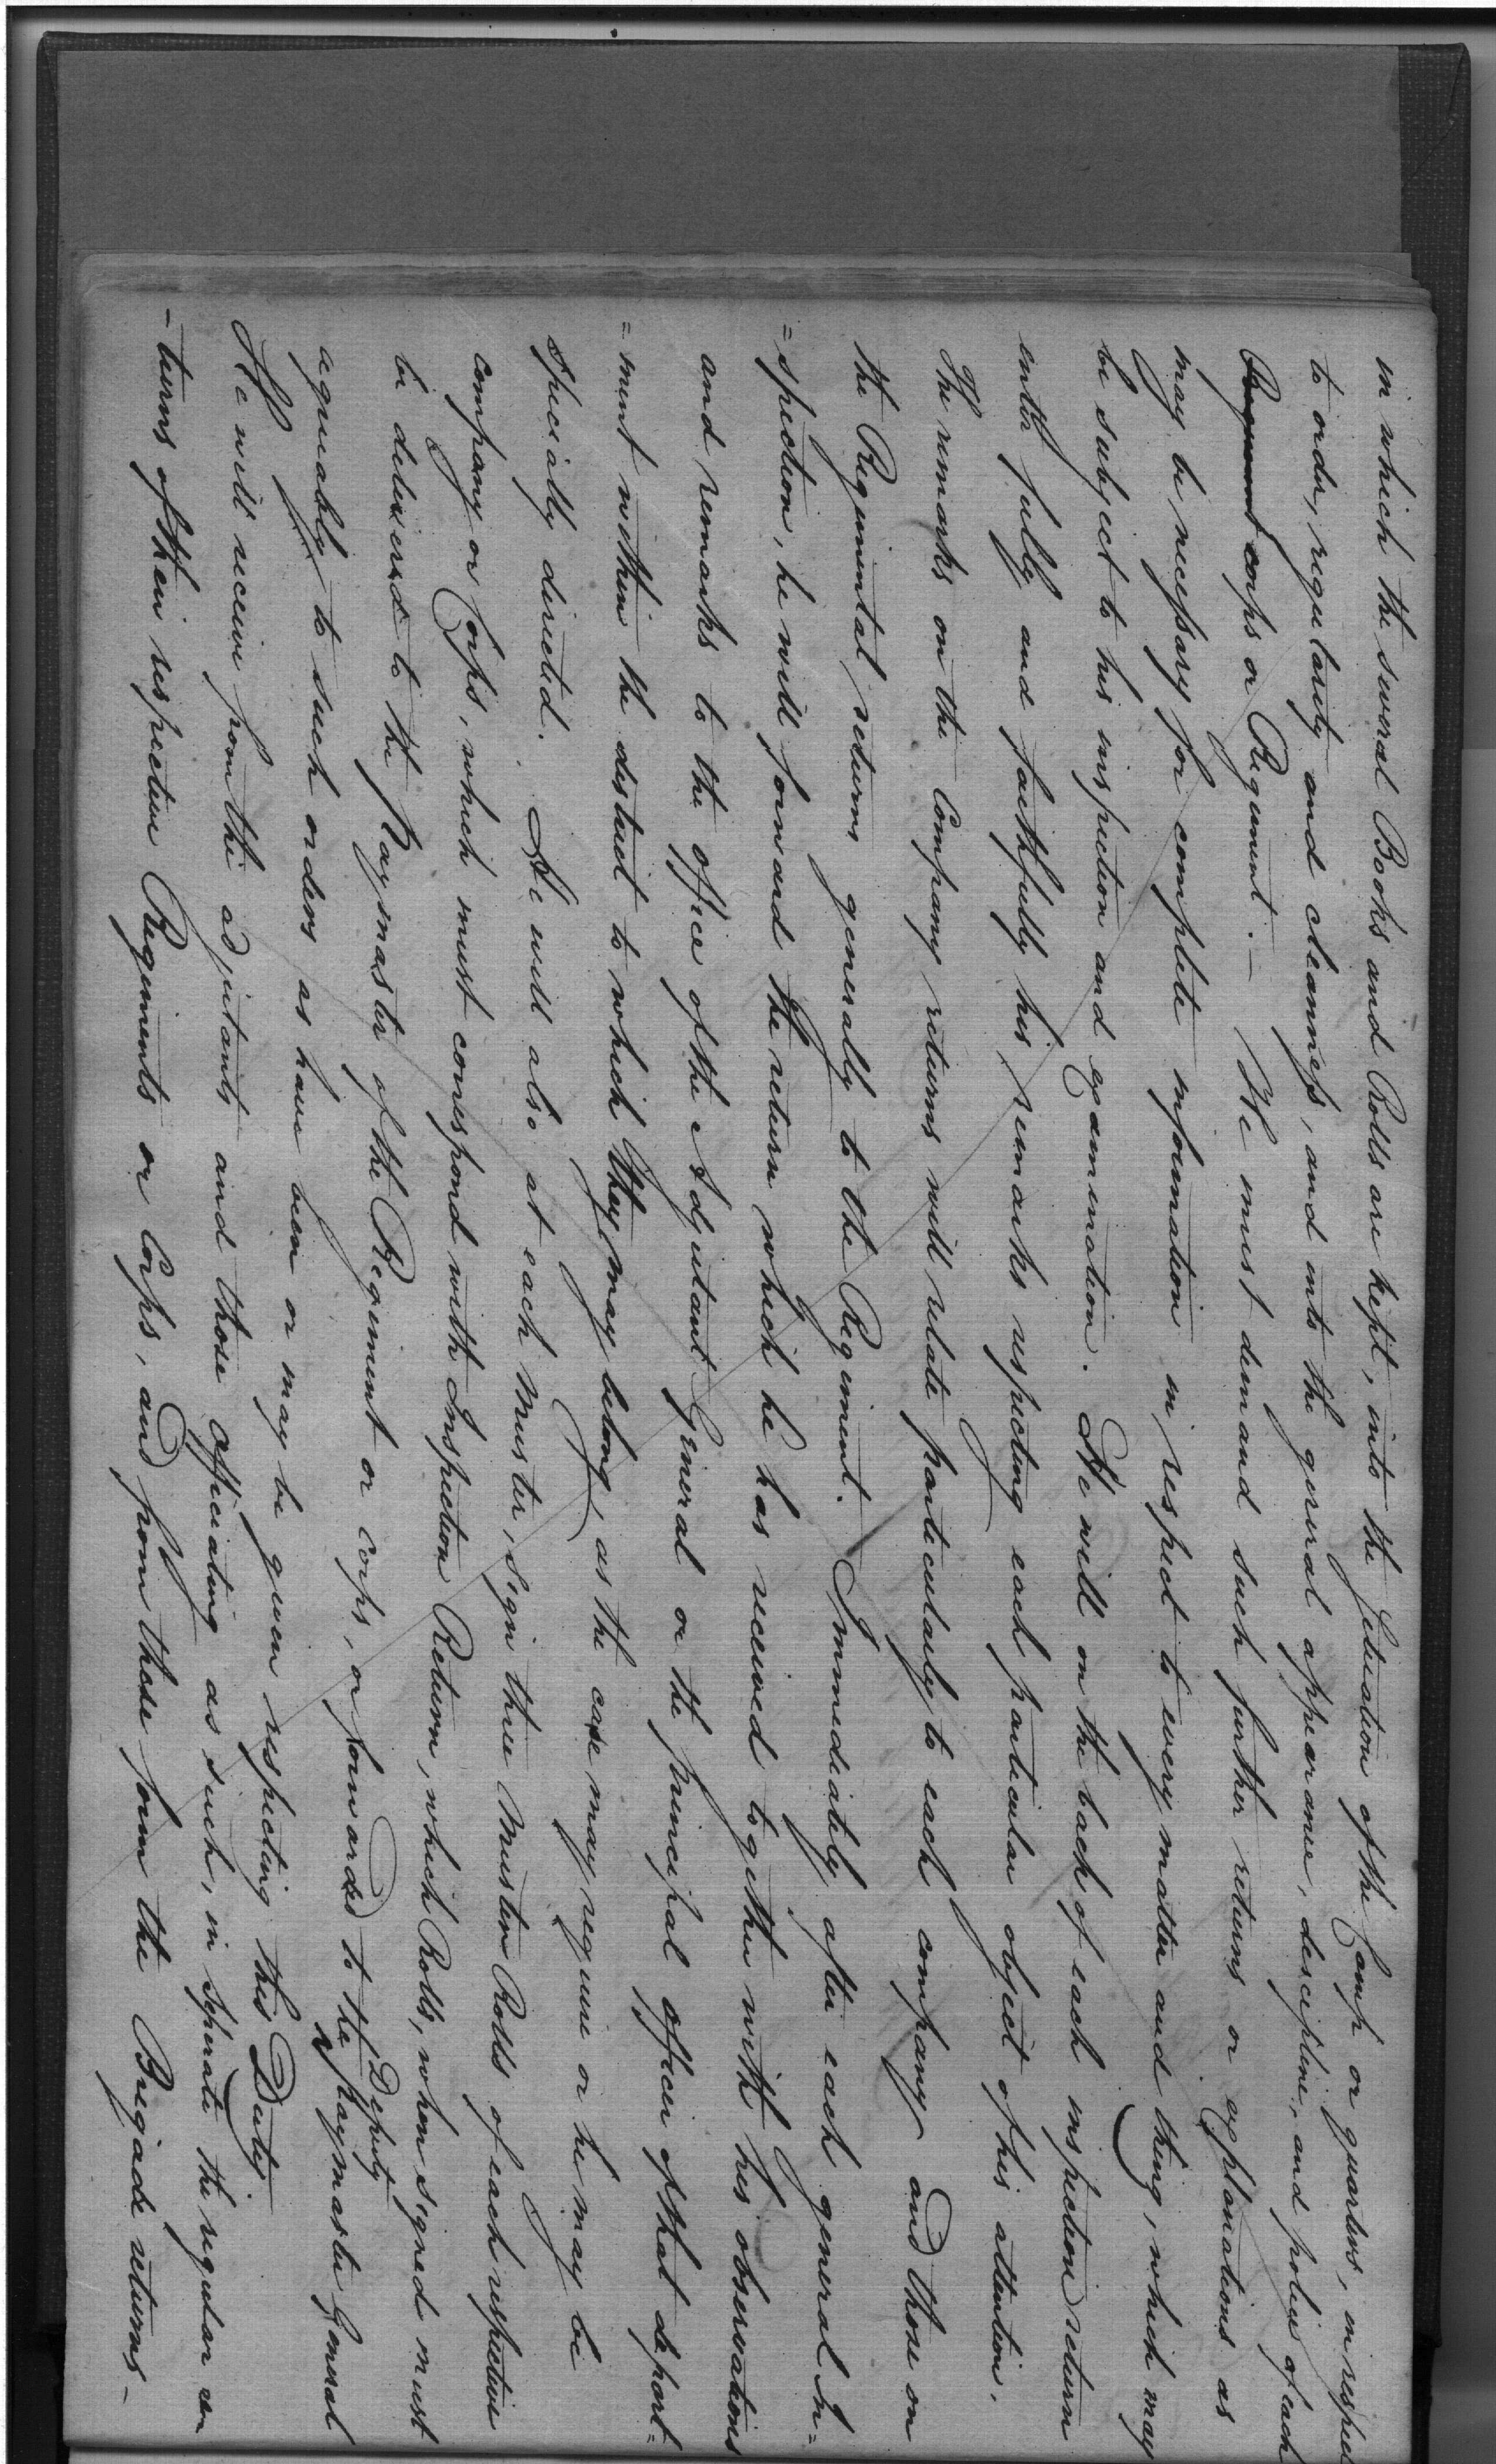 in which the several Books and Rolls are kept, into the situation of the Camp or quarters, in respect
to order, regularity and cleanness, and into the general appearance, discipline, and police of each
Regiment corps or Regiment.— He must demand such further returns or explanations as
may be necessary for complete information in respect to every matter and thing, which may
be subject to his inspection and examination. He will on the back of each inspection return
enter fully and faithfully his remarks respecting each particular object of his attention.
The remarks on the Company returns will relate particularly to each company and those on
the Regimental returns generally to the Regiment. Immediately after each general In=
=spection, he will forward the return which he has received together with his observations
and remarks to the office of the Adjutant General or the principal officer of that depart=
=ment within the district to which they may belong, as the case may require or he may be
specially directed. He will also at each Muster, sign three Muster Rolls of each respective
company or Corps, which must correspond with Inspection Return, which Rolls, when signed must
be delivered to the Paymaster of the Regiment or corps, or forwards to the Deputy Paymaster General
agreeably to such orders as have been or may be given respecting this Duty
He will receive from the adjutants and those officiating as such, in seperate the regular re
-turns of their respective Regiments or Corps, and from those form the Brigade returns—